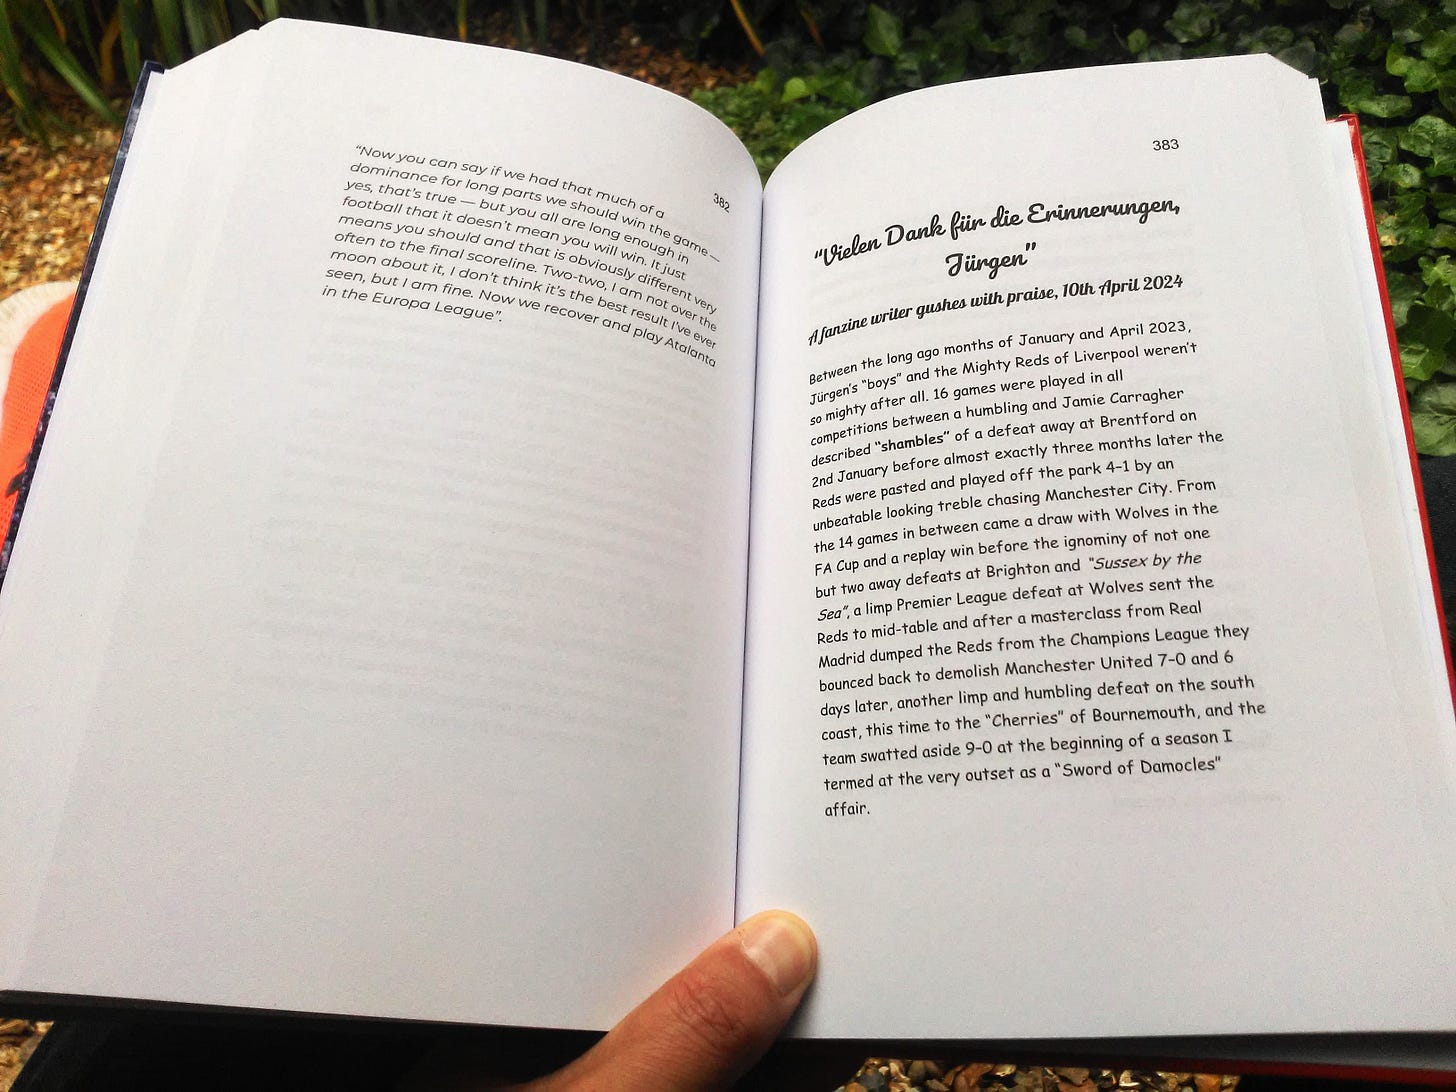 382
“Now you can say if we had that much of a
dominance for long parts we should win the game —
yes, that’s true — but you all are long enough in
football that it doesn’t mean you will win. It just
means you should and that is obviously different very
often to the final scoreline. Two-two, I am not over the
moon about it, I don’t think it’s the best result I’ve ever
seen, but I am fine. Now we recover and play Atalanta
in the Europa League”.
383
“Vielen Dank für die Erinnerungen,
Jürgen”
A fanzine writer gushes with praise, 10th April 2024
Between the long ago months of January and April 2023,
Jürgen’s “boys” and the Mighty Reds of Liverpool weren’t
so mighty after all. 16 games were played in all
competitions between a humbling and Jamie Carragher
described “shambles” of a defeat away at Brentford on
2nd January before almost exactly three months later the
Reds were pasted and played off the park 4-1 by an
unbeatable looking treble chasing Manchester City. From
the 14 games in between came a draw with Wolves in the
FA Cup and a replay win before the ignominy of not one
but two away defeats at Brighton and “Sussex by the
Sea”, a limp Premier League defeat at Wolves sent the
Reds to mid-table and after a masterclass from Real
Madrid dumped the Reds from the Champions League they
bounced back to demolish Manchester United 7-0 and 6
days later, another limp and humbling defeat on the south
coast, this time to the “Cherries” of Bournemouth, and the
team swatted aside 9-0 at the beginning of a season I
termed at the very outset as a “Sword of Damocles”
affair.